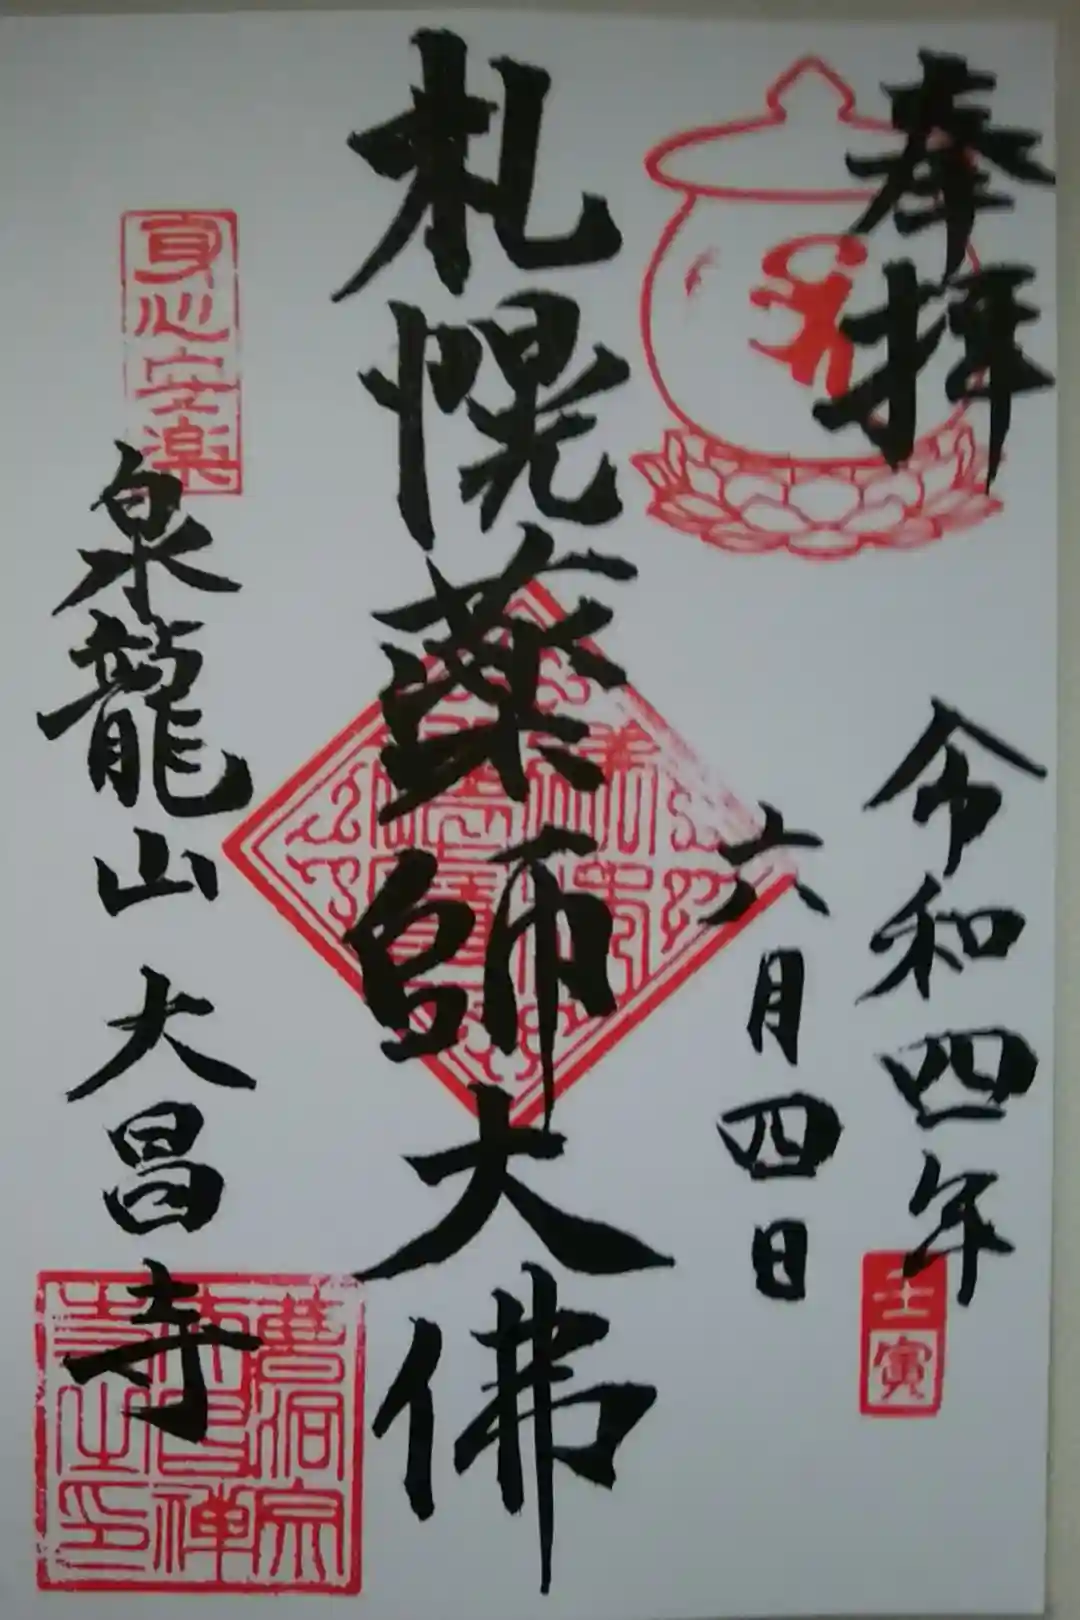 奉拝
令和四年
壬寅
六月四日
札幌薬師大佛
身心安楽
泉龍山 大昌寺
曹洞宗
大昌禅
寺之印